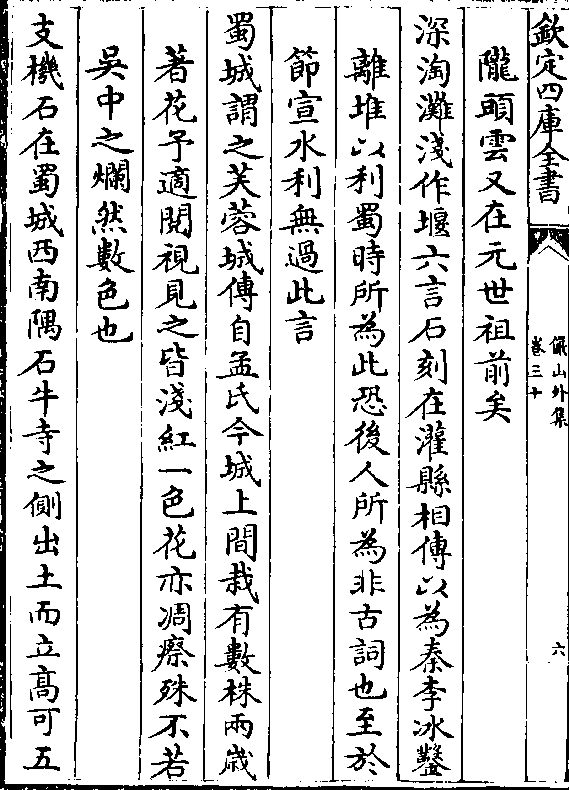 欽定四庫全書
儼山外集
卷三十
六
隴頭雲又在元世祖前矣
深淘灘淺作堰六言石刻在灌縣相傳以為秦李冰鑿
離堆以利蜀時所為此恐後人所為非古詞也至於
節宣水利無過此言
蜀城謂之芙蓉城傳自孟氏今城上間栽有數株兩歳
著花予適閱視見之皆淺紅一色花亦凋瘵殊不若
吳中之爛然數色也
支機石在蜀城西南隅石牛寺之側出土而立高可五